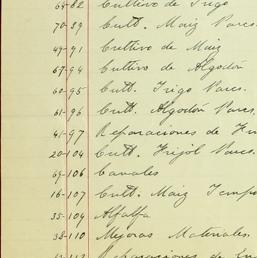 64-82 Cultivo de Trigo
70-89 Cult. Maiz Vares.
49-91 Cultivo de Maiz
67-94 Cultivo de Algodón
60-95 Cult. Trigo Vares.
61-96 Cult. Algodón Vares.
41-97 Reparaciones de
20-104 Cult. Frijol Vares.
69-106 Canales
16-107 Cult. Maiz Temp
35-109 Alfalfa
38-110 Mejoras Materiales.
Reparaciones de